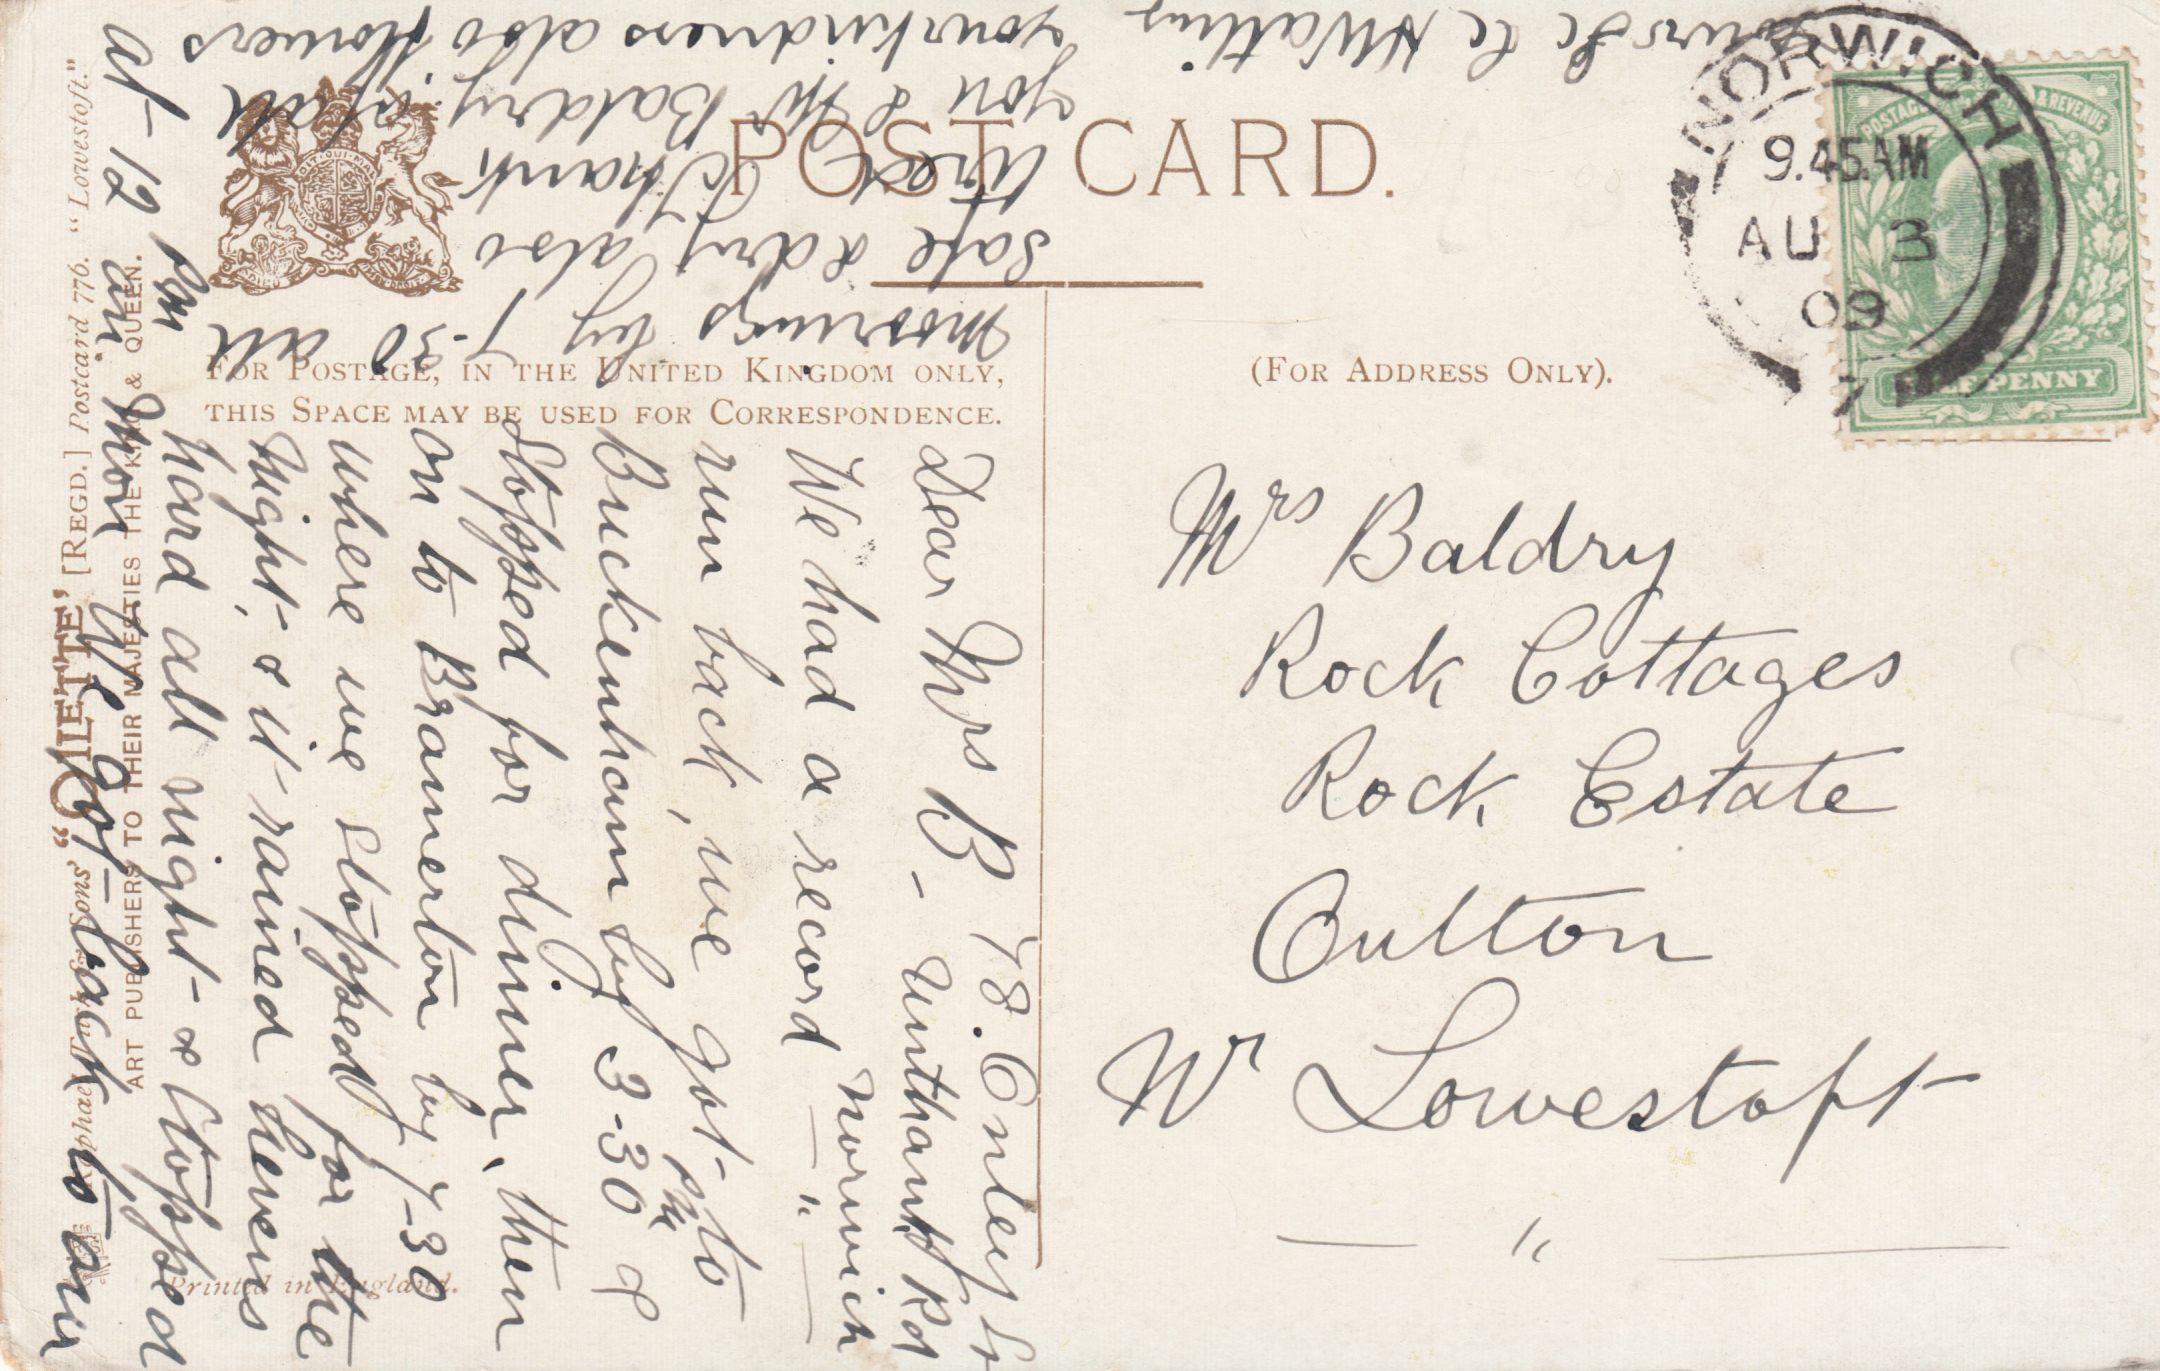 POST CARD.
FOR POSTAGE, IN THE UNITED KINGDOM ONLY,
THIS SPACE MAY BE USED FOR CORRESPONDENCE.
(FOR ADDRESS ONLY).
NORWICH
9.45AM
AU 3
09
7
POSTAGE & REVENUE
HALFPENNY
Mrs Baldry
Rock Cottages
Rock Estate
Oulton
Nr Lowestoft
78. Onley St
Unthank Rd
Norwich
Dear Mrs B-
We had a record
run back, we got to
Buckenham by 3-30 pm &
stopped for dinner, then
on to Bramerton by 7-30
where we stopped for the
night, & it rained Heavens
hard all night & stopped
At 12 pm
Mon We got back to our
moorings by 7-30 all
safe & dry, also
tired. Thank
you & Mr Baldry all
your kindness also flowers
Yours &c H Watling.
Raphael Tuck & Sons' "OILETTE" [REGD.] Postcard 776. "Lowestoft."
ART PUBLISHERS TO THEIR MAJESTIES THE KING & QUEEN.
Printed in England.